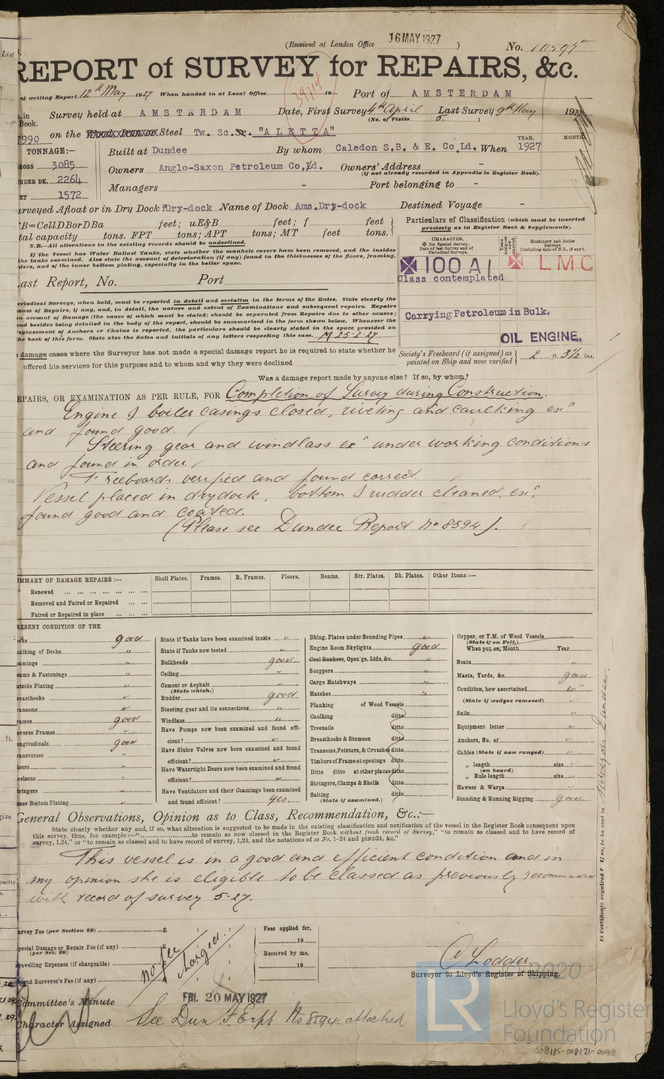 (Received at London Office 16 MAY 1927 )
No. 10595
REPORT of SURVEY for REPAIRS, &c.
of writing Report 12th May 1927 When handed in at Local Office 19 Port of AMSTERDAM
Survey held at AMSTERDAM Date, First Survey 4th April Last Survey 9th May 19
(No. of Visits 5 )
on the Steel Tw. Sc. "ALETTA"
TONNAGE:—
GROSS 3085
UNDER DK. 2264
NET 1572
Built at Dundee By whom Caledon S.B. & E. Co. Ld. When YEAR. 1927 MONTH.
Owners Anglo-Saxon Petroleum Co, Ld. Owners' Address -
(if not already recorded in Appendix to Register Book).
Managers - Port belonging to -
Surveyed Afloat or in Dry Dock? Dry-dock Name of Dock Ams. Dry-dock Destined Voyage -
B=CellDBorDBa feet; uE&B feet; f feet
total capacity tons. FPT tons; APT tons; MT feet tons.
N.B.—All alterations in the existing records should be underlined.
If the Vessel has Water Ballast Tanks, state whether the manhole covers have been removed, and the insides
Particulars of Classification (which must be inserted
precisely as in Register Book & Supplements).
100 A1 LMC
Class contemplated
Carrying Petroleum in Bulk.
OIL ENGINE.
Last Report, No. Port
M 25-2-27
damage cases where the Surveyor has not made a special damage report he is required to state whether he
offered his services for this purpose and to whom and why they were declined
Society's Freeboard (if assigned) as
painted on Ship and now verified 2 . 3½
Was a damage report made by anyone else? If so, by whom?
REPAIRS, OR EXAMINATION AS PER RULE, FOR Completion of Survey during Construction.
Engine & boiler casings closed, riveting and caulking exd
and found good.
Steering gear and windlass exd under working conditions
and found in order.
Freeboards verified and found correct
Vessel placed in drydock, bottom & rudder cleaned, exd
found good and coated.
(Please see Dundee Report No 8594).
SUMMARY OF DAMAGE REPAIRS :— Shell Plates. Frames. R. Frames. Floors. Beams. Str. Plates. Dk. Plates. Other Items :—
Renewed
Removed and Faired or Repaired
Faired or Repaired in place
PRESENT CONDITION OF THE
Decks good
Caulking of Decks "
Coamings "
Beams & Fastenings "
Outside Plating "
Breasthooks "
Transoms "
Frames good
Reverse Frames "
Longitudinals good
Transverses "
Floors "
Keelsons "
Stringers "
Inner Bottom Plating "
State if Tanks have been examined inside
State if Tanks now tested
Bulkheads good
Ceiling
Cement or Asphalt
(State which.)
Rudder good
Steering gear and its connections "
Windlass "
Have Pumps now been examined and found effi-
cient?
Have Sluice Valves now been examined and found
efficient?
Have Watertight Doors now been examined and found
efficient?
Have Ventilators and their Coamings been examined
and found efficient? yes.
Dblng. Plates under Sounding Pipes "
Engine Room Skylights good
Coal Bunkers, Open'gs, Lids, &c.
Scuppers "
Cargo Hatchways "
Hatches "
Planking of Wood Vessels
Caulking ditto
Treenails ditto
Breasthooks & Stemson ditto
Transoms, Pointers, & Crutches ditto
Timbers of Frame at openings ditto
Ditto ditto at other places ditto
Stringers, Clamps & Shelfs ditto
Salting ditto
(State if examined.)
Copper, or Y.M. of Wood Vessels
(State if on Felt.)
When put on, Month Year
Boats
Masts, Yards, &c. good
Condition, how ascertained
(State if wedges removed)
Sails
Equipment letter
Anchors, No. of
Cables (State if now ranged)
" length
(on board)
" Rule length
Hawser & Warps
Standing & Running Rigging good
General Observations, Opinion as to Class, Recommendation, &c.:—
State clearly whether any and, if so, what alteration is suggested to be made in the existing classification and notification of the vessel in the Register Book consequent upon
This vessel is in a good and efficient condition and in
my opinion she is eligible to be classed as previously recommended
with record of survey 5-27.
Survey Fee (per Section 29) £
Special Damage or Repair Fee (if any)
(per Sec. 29)
Travelling Expenses (if chargeable)
2nd Surveyor's Fee (if any) £
no fee charged.
Fees applied for,
19
Received by me,
19
Lodder
Surveyor to Lloyd's Register of Shipping.
Committee's Minute FRI. 20 MAY 1927
Character Assigned See Dun F.E. rpt No 8594 attached
2020
LR
Lloyd's Register
Foundation
008115-008121-0098